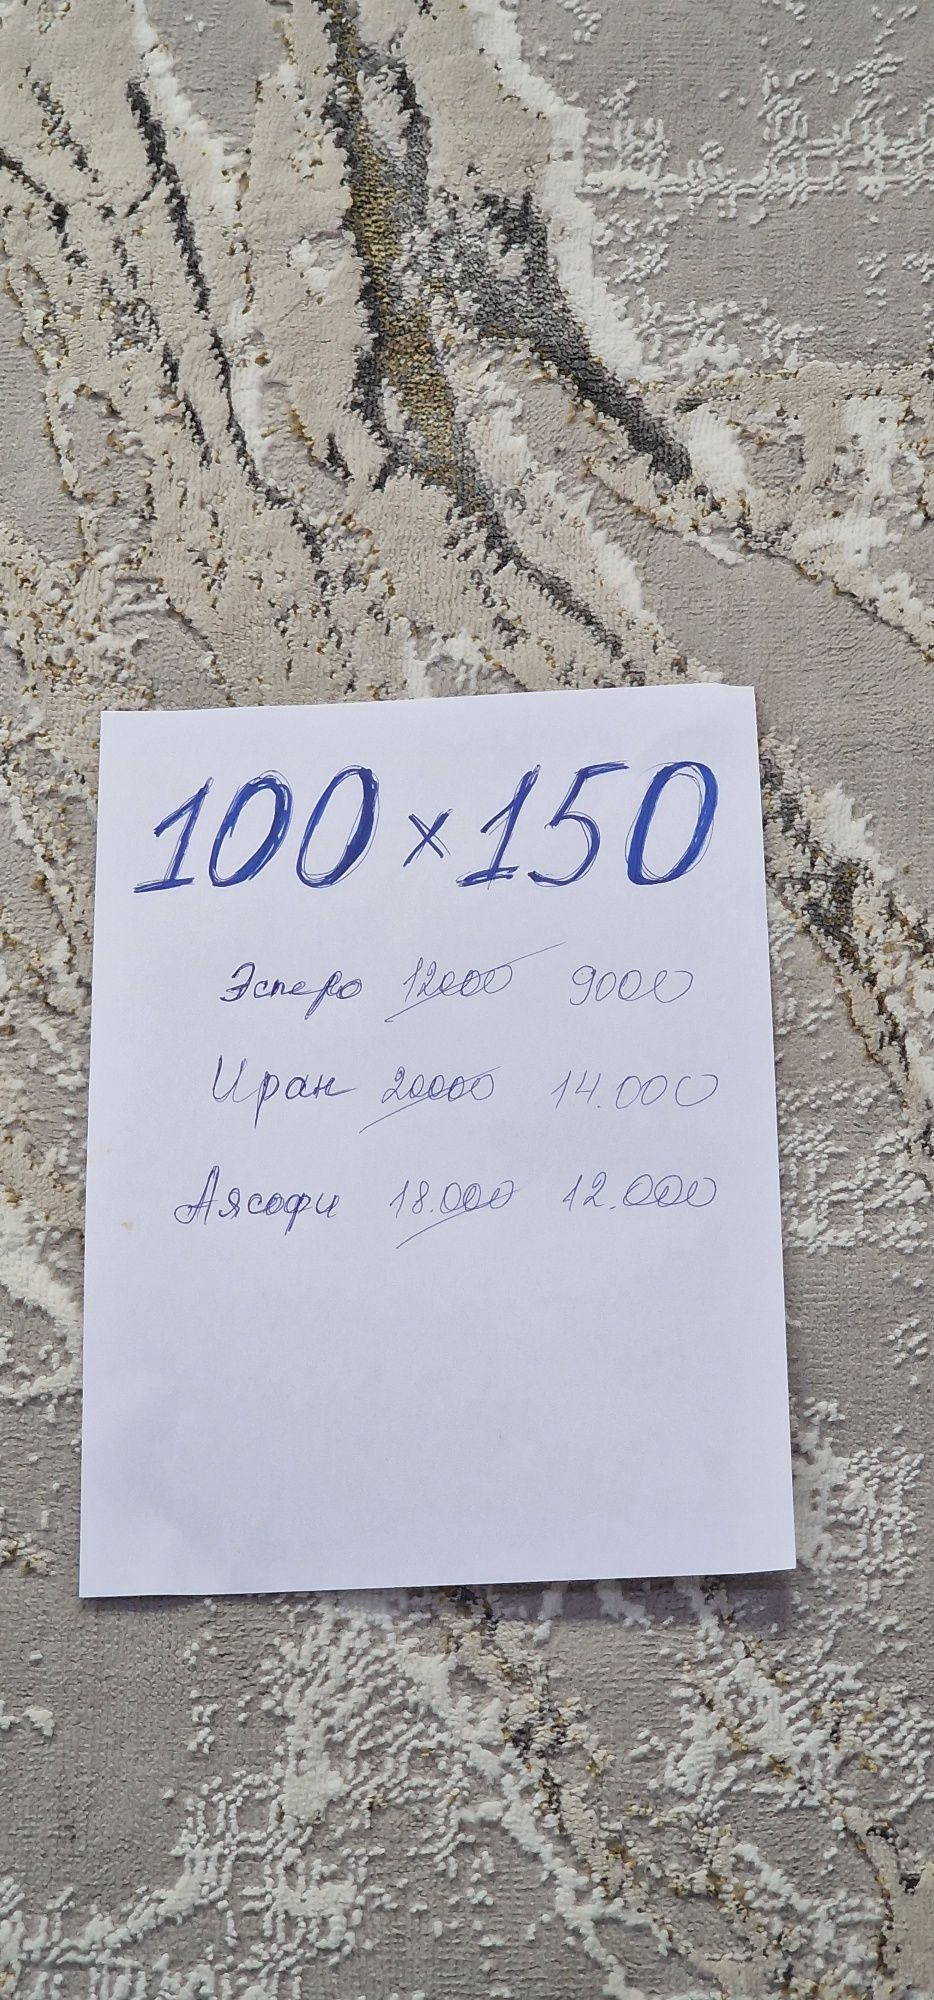 100×150
Эсперо 12000 9000
Иран 20000 14.000
Аясофи 18.000 12.000